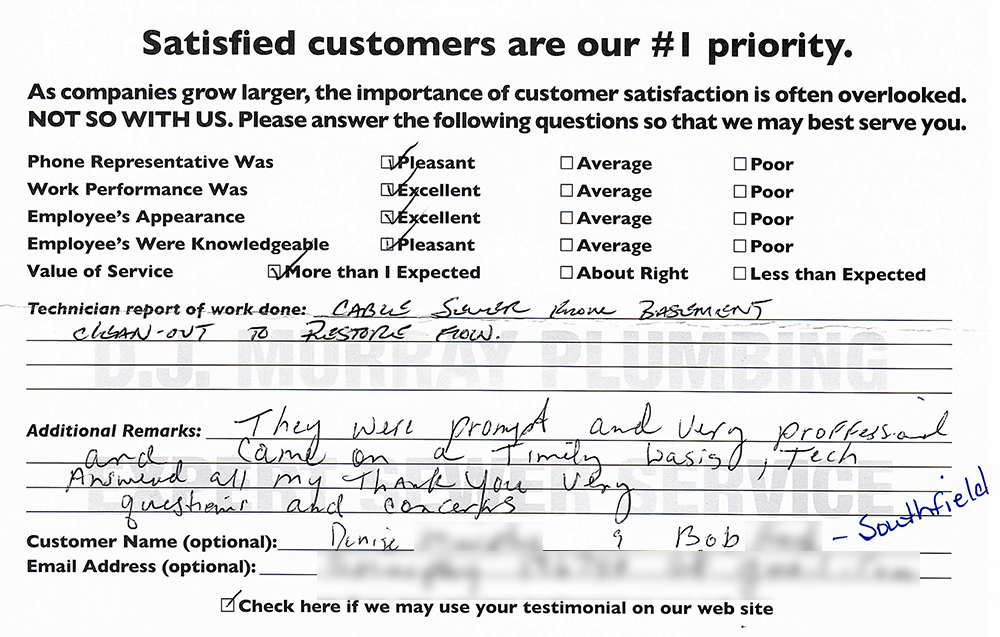 Satisfied customers are our #1 priority.
As companies grow larger, the importance of customer satisfaction is often overlooked.
NOT SO WITH US. Please answer the following questions so that we may best serve you.
Phone Representative Was ☑Pleasant ☐Average ☐Poor
Work Performance Was ☑Excellent ☐Average ☐Poor
Employee's Appearance ☑Excellent ☐Average ☐Poor
Employee's Were Knowledgeable ☑Pleasant ☐Average ☐Poor
Value of Service ☑More than I Expected ☐About Right ☐Less than Expected
Technician report of work done: CABLE SEWER FROM BASEMENT
CLEAN-OUT TO RESTORE FLOW.
D.J. MURRAY PLUMBING
Additional Remarks: They were prompt and very proffessional
and came on a timily basis, Tech
Answered all my Thank You Very
questions and concerns
EXPERT SEWER SERVICE
Customer Name (optional): Denise & Bob - Southfield
Email Address (optional):
☑Check here if we may use your testimonial on our web site